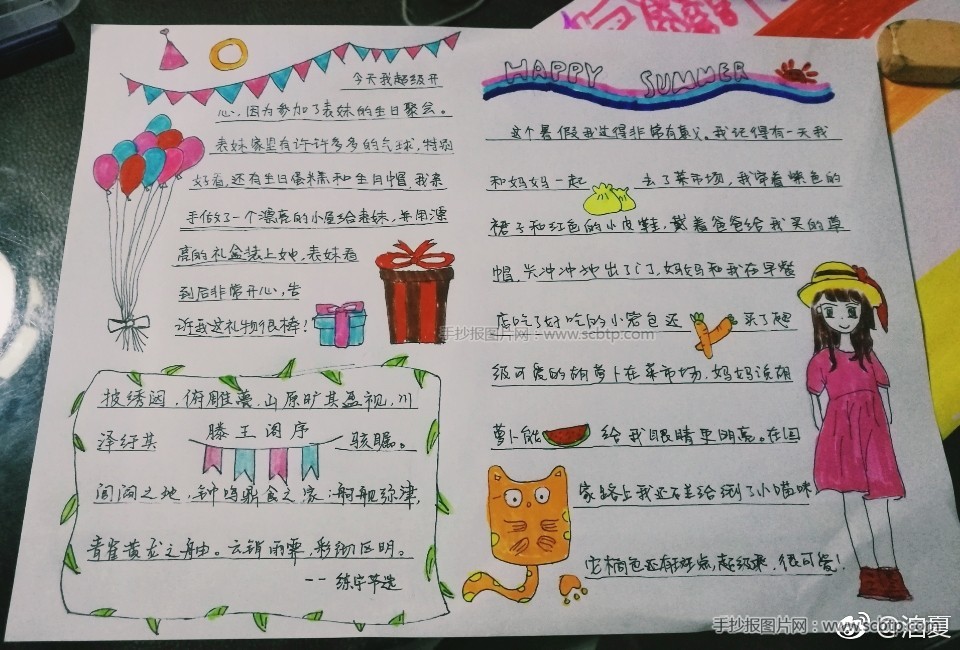 今天我超级开
心,因为参加了表妹的生日聚会。
表妹家里有许许多多的气球,特别
好看,还有生日蛋糕和生日帽,我亲
手做了一个漂亮的小屋给表妹,并用漂
亮的礼盒装上她,表妹看
到后非常开心,告
诉我这礼物很棒!
披绣闼,俯雕甍,山原旷其盈视,川
泽纡其
滕王阁序
骇瞩。
闾阎之地,钟鸣鼎食之家;舸舰弥津,
青雀黄龙之舳。云销雨霁,彩彻区明。
--练字节选
HAPPY SUMMER
这个暑假我过得非常有意义。我记得有一天我
和妈妈一起 去了菜市场,我穿着 色的
裙子和红色的小皮鞋,戴着爸爸给我买的草
帽,兴冲冲地出了门,妈妈和我在早餐
店吃了好吃的小笼包还 买了超
级可爱的胡萝卜在菜市场,妈妈说胡
萝卜能 给我眼睛更明亮。在回
家路上我还 给 到了小喵咪
它橘色还有斑点,超级 ,很可爱!
手抄报图片网-www.scbtp.com
手抄报图片网:www.scbtp.com
@泊夏